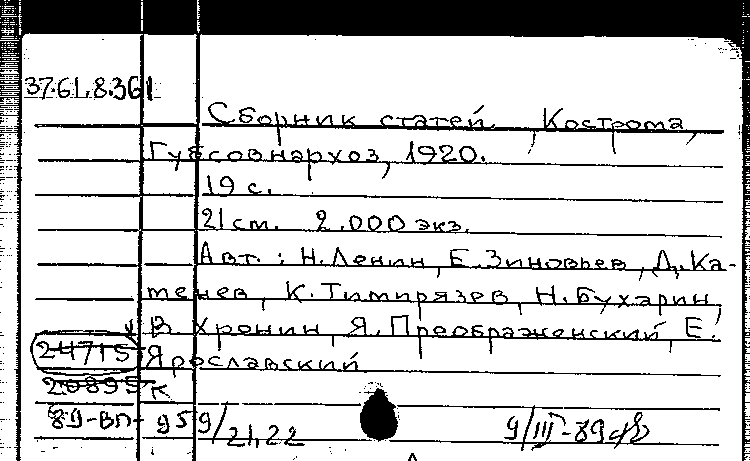 37.61.8.361
Сборник статей. Кострома,
Губсовнархоз, 1920.
19 с.
21 см. 2.000 экз.
Авт.: Н.Ленин, Е.Зиновьев, Д.Ка-
менев, К.Тимирязев, Н.Бухарин,
В Хронин, Я.Преображенский, Е.
24715 Ярославский
20895 к
89-ВП- 959/21,22 9/III-89